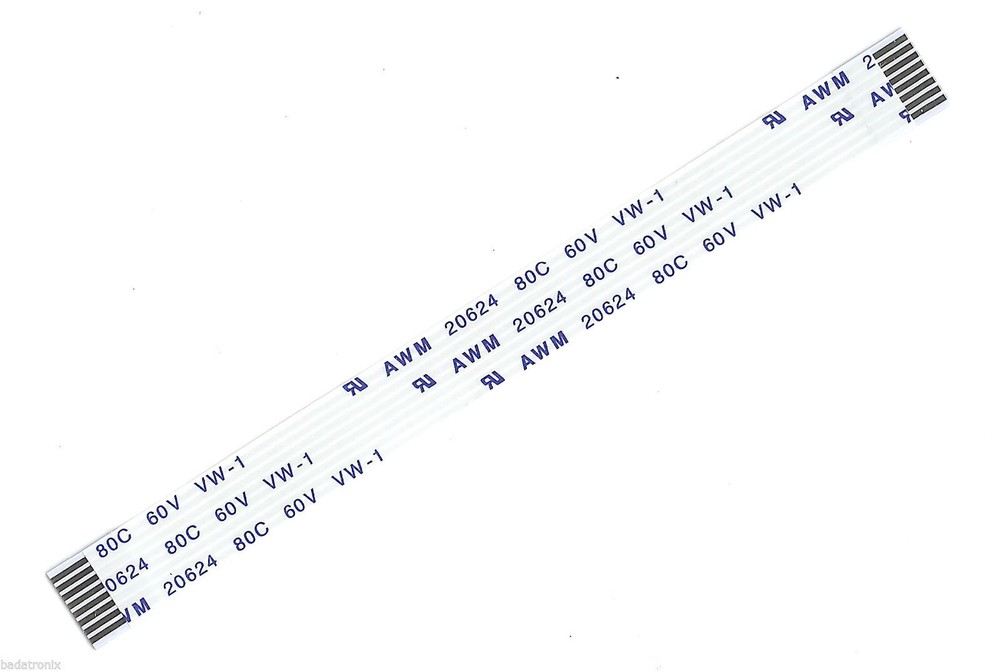 AWM 2
AW
80C 60V VW-1 AWM 20624 80C 60V VW-1
0624 80C 60V VW-1 AWM 20624 80C 60V VW-1
WM 20624 80C 60V VW-1 AWM 20624 80C 60V VW-1
badatronix